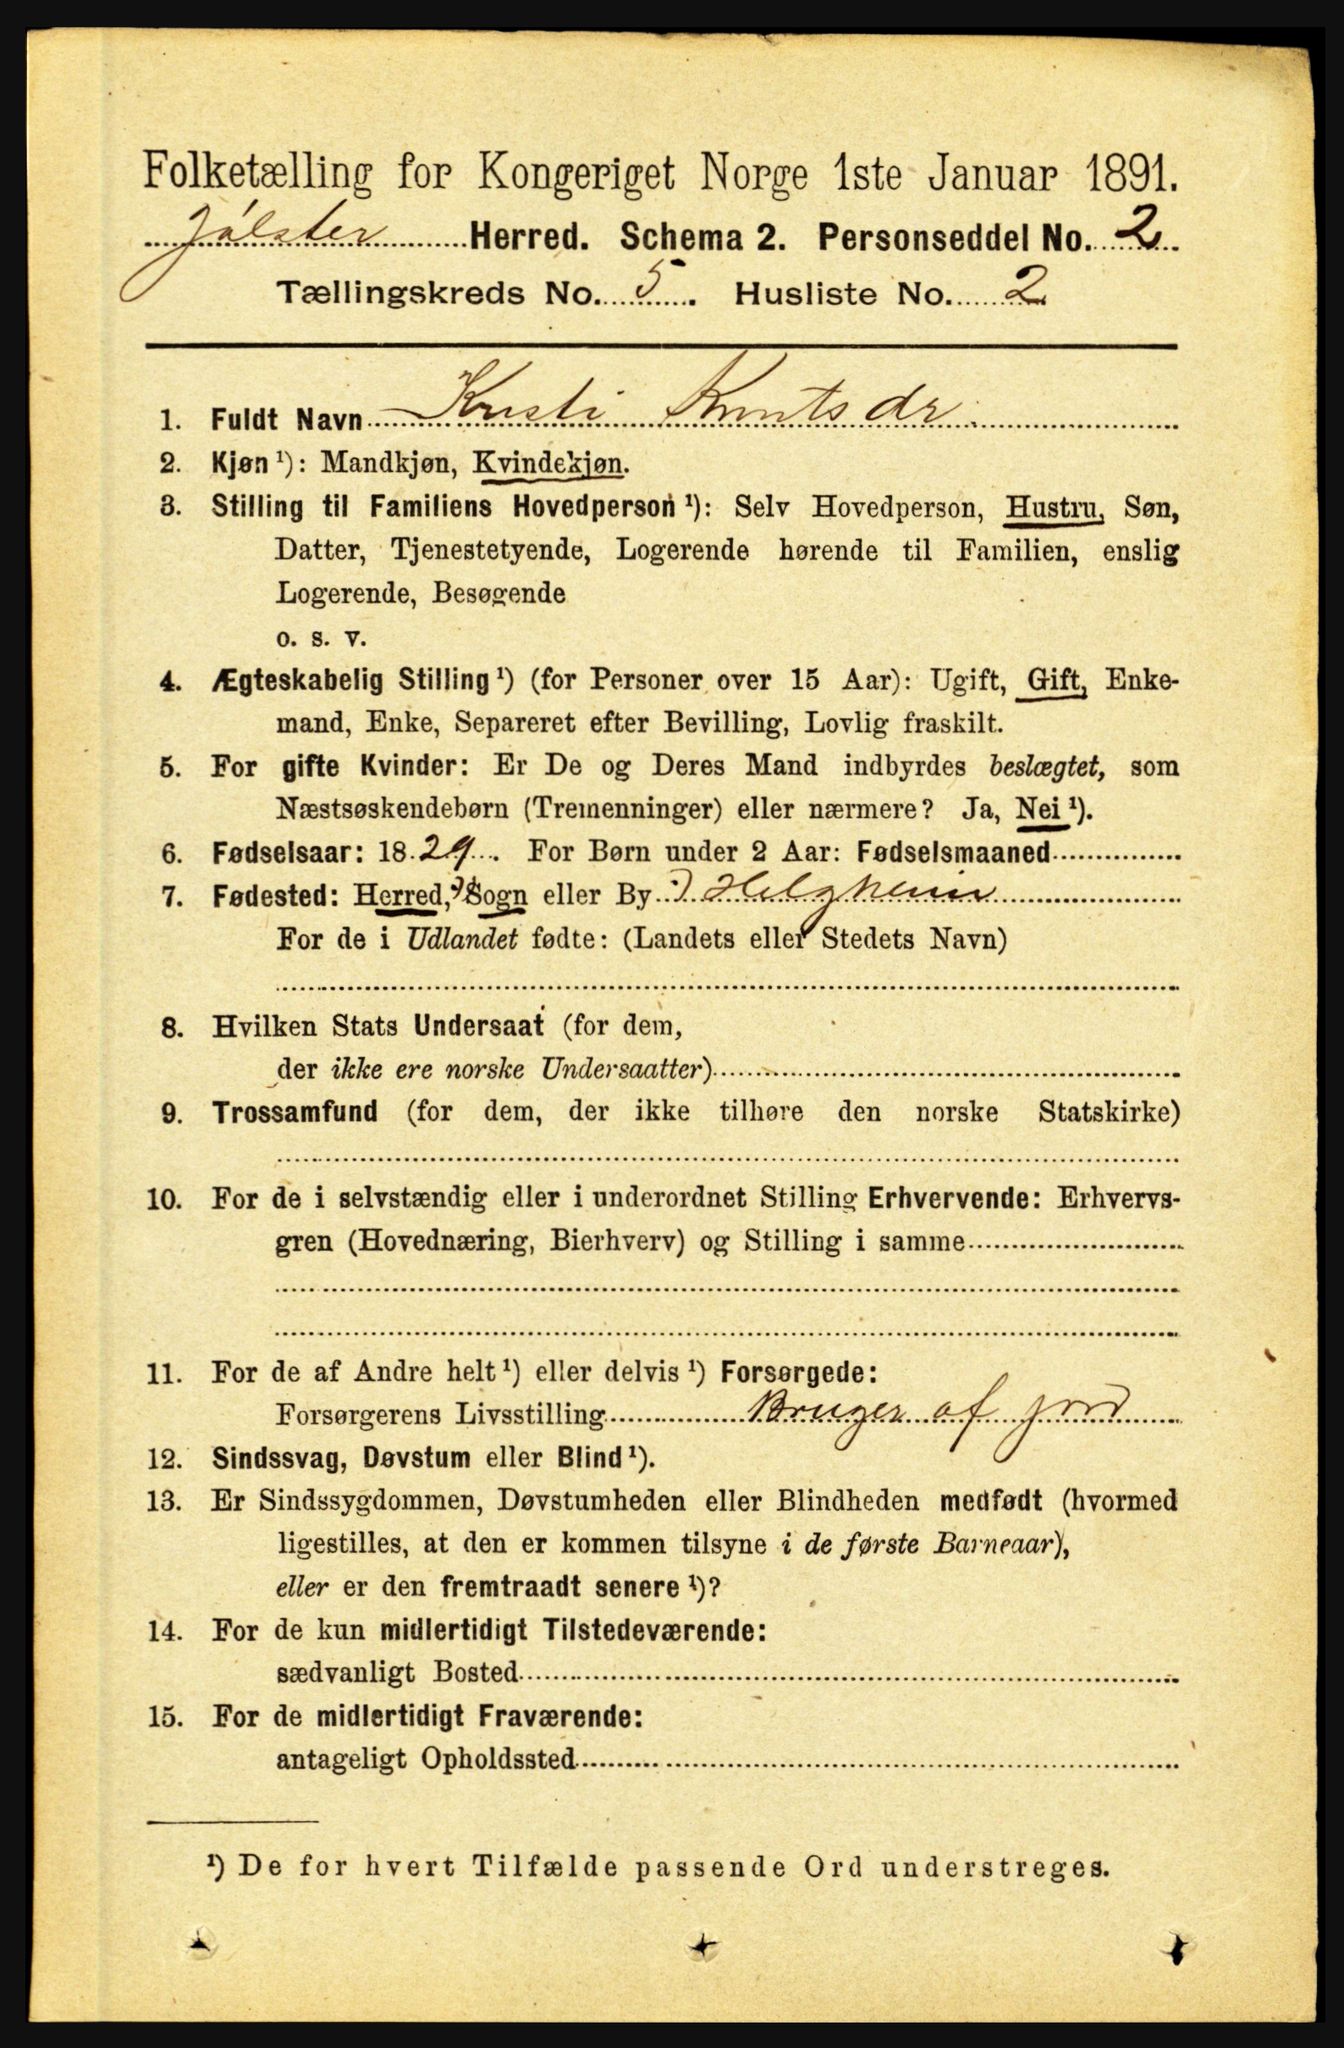 Folketælling for Kongeriget Norge 1ste Januar 1891.
Jølster Herred. Schema 2. Personseddel No. 2
Tællingskreds No. 5. Husliste No. 2
1. Fuldt Navn Kristi Knutsdr.
2. Kjøn ¹): Mandkjøn, Kvindekjøn.
3. Stilling til Familiens Hovedperson ¹): Selv Hovedperson, Hustru, Søn,
Datter, Tjenestetyende, Logerende hørende til Familien, enslig
Logerende, Besøgende
o. s. v.
4. Ægteskabelig Stilling ¹) (for Personer over 15 Aar): Ugift, Gift, Enke-
mand, Enke, Separeret efter Bevilling, Lovlig fraskilt.
5. For gifte Kvinder: Er De og Deres Mand indbyrdes beslægtet, som
Næstsøskendebørn (Tremenninger) eller nærmere? Ja, Nei ¹).
6. Fødselsaar: 1829. For Børn under 2 Aar: Fødselsmaaned
7. Fødested: Herred, Sogn eller By Helgheim
For de i Udlandet fødte: (Landets eller Stedets Navn)
8. Hvilken Stats Undersaat (for dem,
der ikke ere norske Undersaatter)
9. Trossamfund (for dem, der ikke tilhøre den norske Statskirke)
10. For de i selvstændig eller i underordnet Stilling Erhvervende: Erhvervs-
gren (Hovednæring, Bierhverv) og Stilling i samme
11. For de af Andre helt ¹) eller delvis ¹) Forsørgede:
Forsørgerens Livsstilling Bruger af jord
12. Sindssvag, Døvstum eller Blind ¹).
13. Er Sindssygdommen, Døvstumheden eller Blindheden medfødt (hvormed
ligestilles, at den er kommen tilsyne i de første Barneaar),
eller er den fremtraadt senere ¹)?
14. For de kun midlertidigt Tilstedeværende:
sædvanligt Bosted
15. For de midlertidigt Fraværende:
antageligt Opholdssted
¹) De for hvert Tilfælde passende Ord understreges.